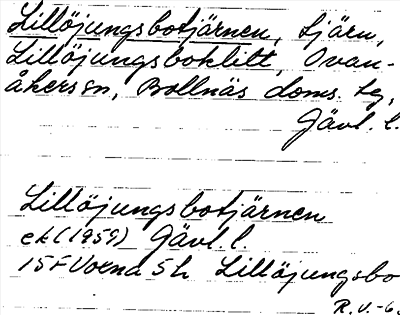 Lillöjungsbotjärnen, tjärn,
Lillöjungsboklitt, Ovan-
åkers sn, Bollnäs doms. tg,
Gävl. l.
Lillöjungsbotjärnen
ek (1959) Gävl. l.
15F Voxna 5h Lillöjungsbo
R.V.-6